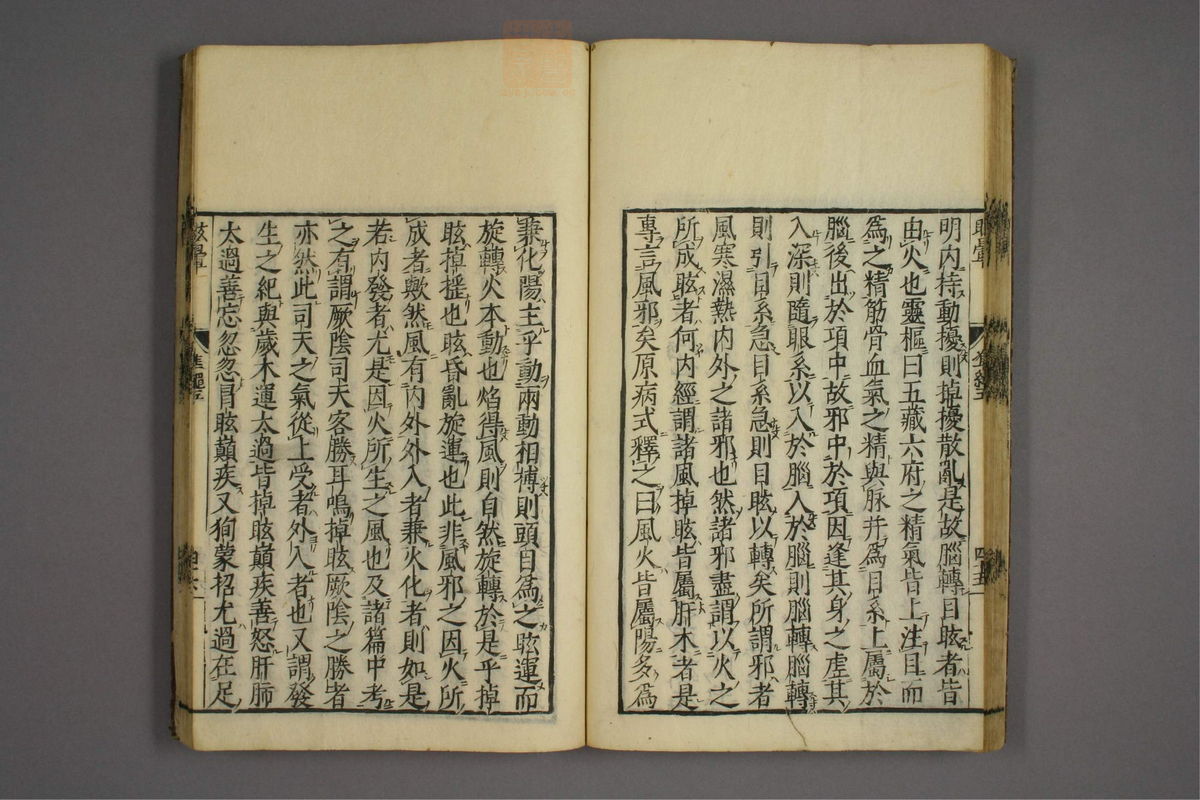 明内持動擾則掉擾散亂是故腦轉目眩者皆
由火也靈樞曰五藏六府之精氣皆上注目而
爲之精筋骨血氣之精與脉并爲目系上屬於
腦後出於項中故邪中於項因逢其身之虛其
入深則隨眼系以入於腦入於腦則腦轉腦轉
則引目系急目系急則目眩以轉矣所謂邪者
風寒濕熱内外之諸邪也然諸邪盡謂以火之
所成眩者何内經謂諸風掉眩皆屬肝木者是
專言風邪矣原病式釋之曰風火皆屬陽多爲
兼化陽主乎動兩動相搏則頭目爲之眩運而
旋轉火本動也焰得風則自然旋轉於是乎掉
眩掉搖也眩昏亂旋運也此非風邪之因火所
成者歟然風有内外外入者兼火化者則如是
若内發者尤是因火所生之風也及諸篇中考
之有謂厥陰司天客勝耳鳴掉眩厥陰之勝者
亦然此司天之氣從上受者外入者也又謂發
生之紀與歲木運太過皆掉眩巔疾善怒肝肺
太過善忘忽忽冒眩巔疾又狥蒙招尤過在足
眩暈